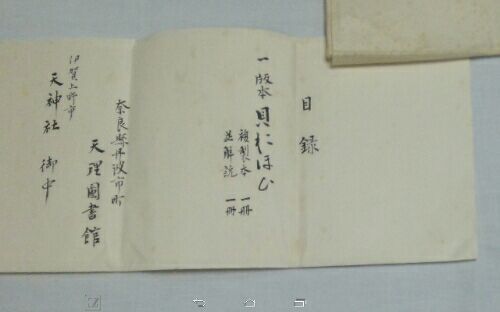 目録
一 版本 貝おほひ
複製本 一冊
並解説 一冊
奈良縣丹波市町
天理圖書館
伊賀上野市
天神社 御中